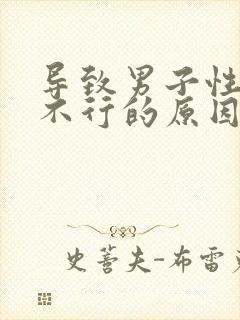 导致男子性
不行的原因
史蒈夫-布雷